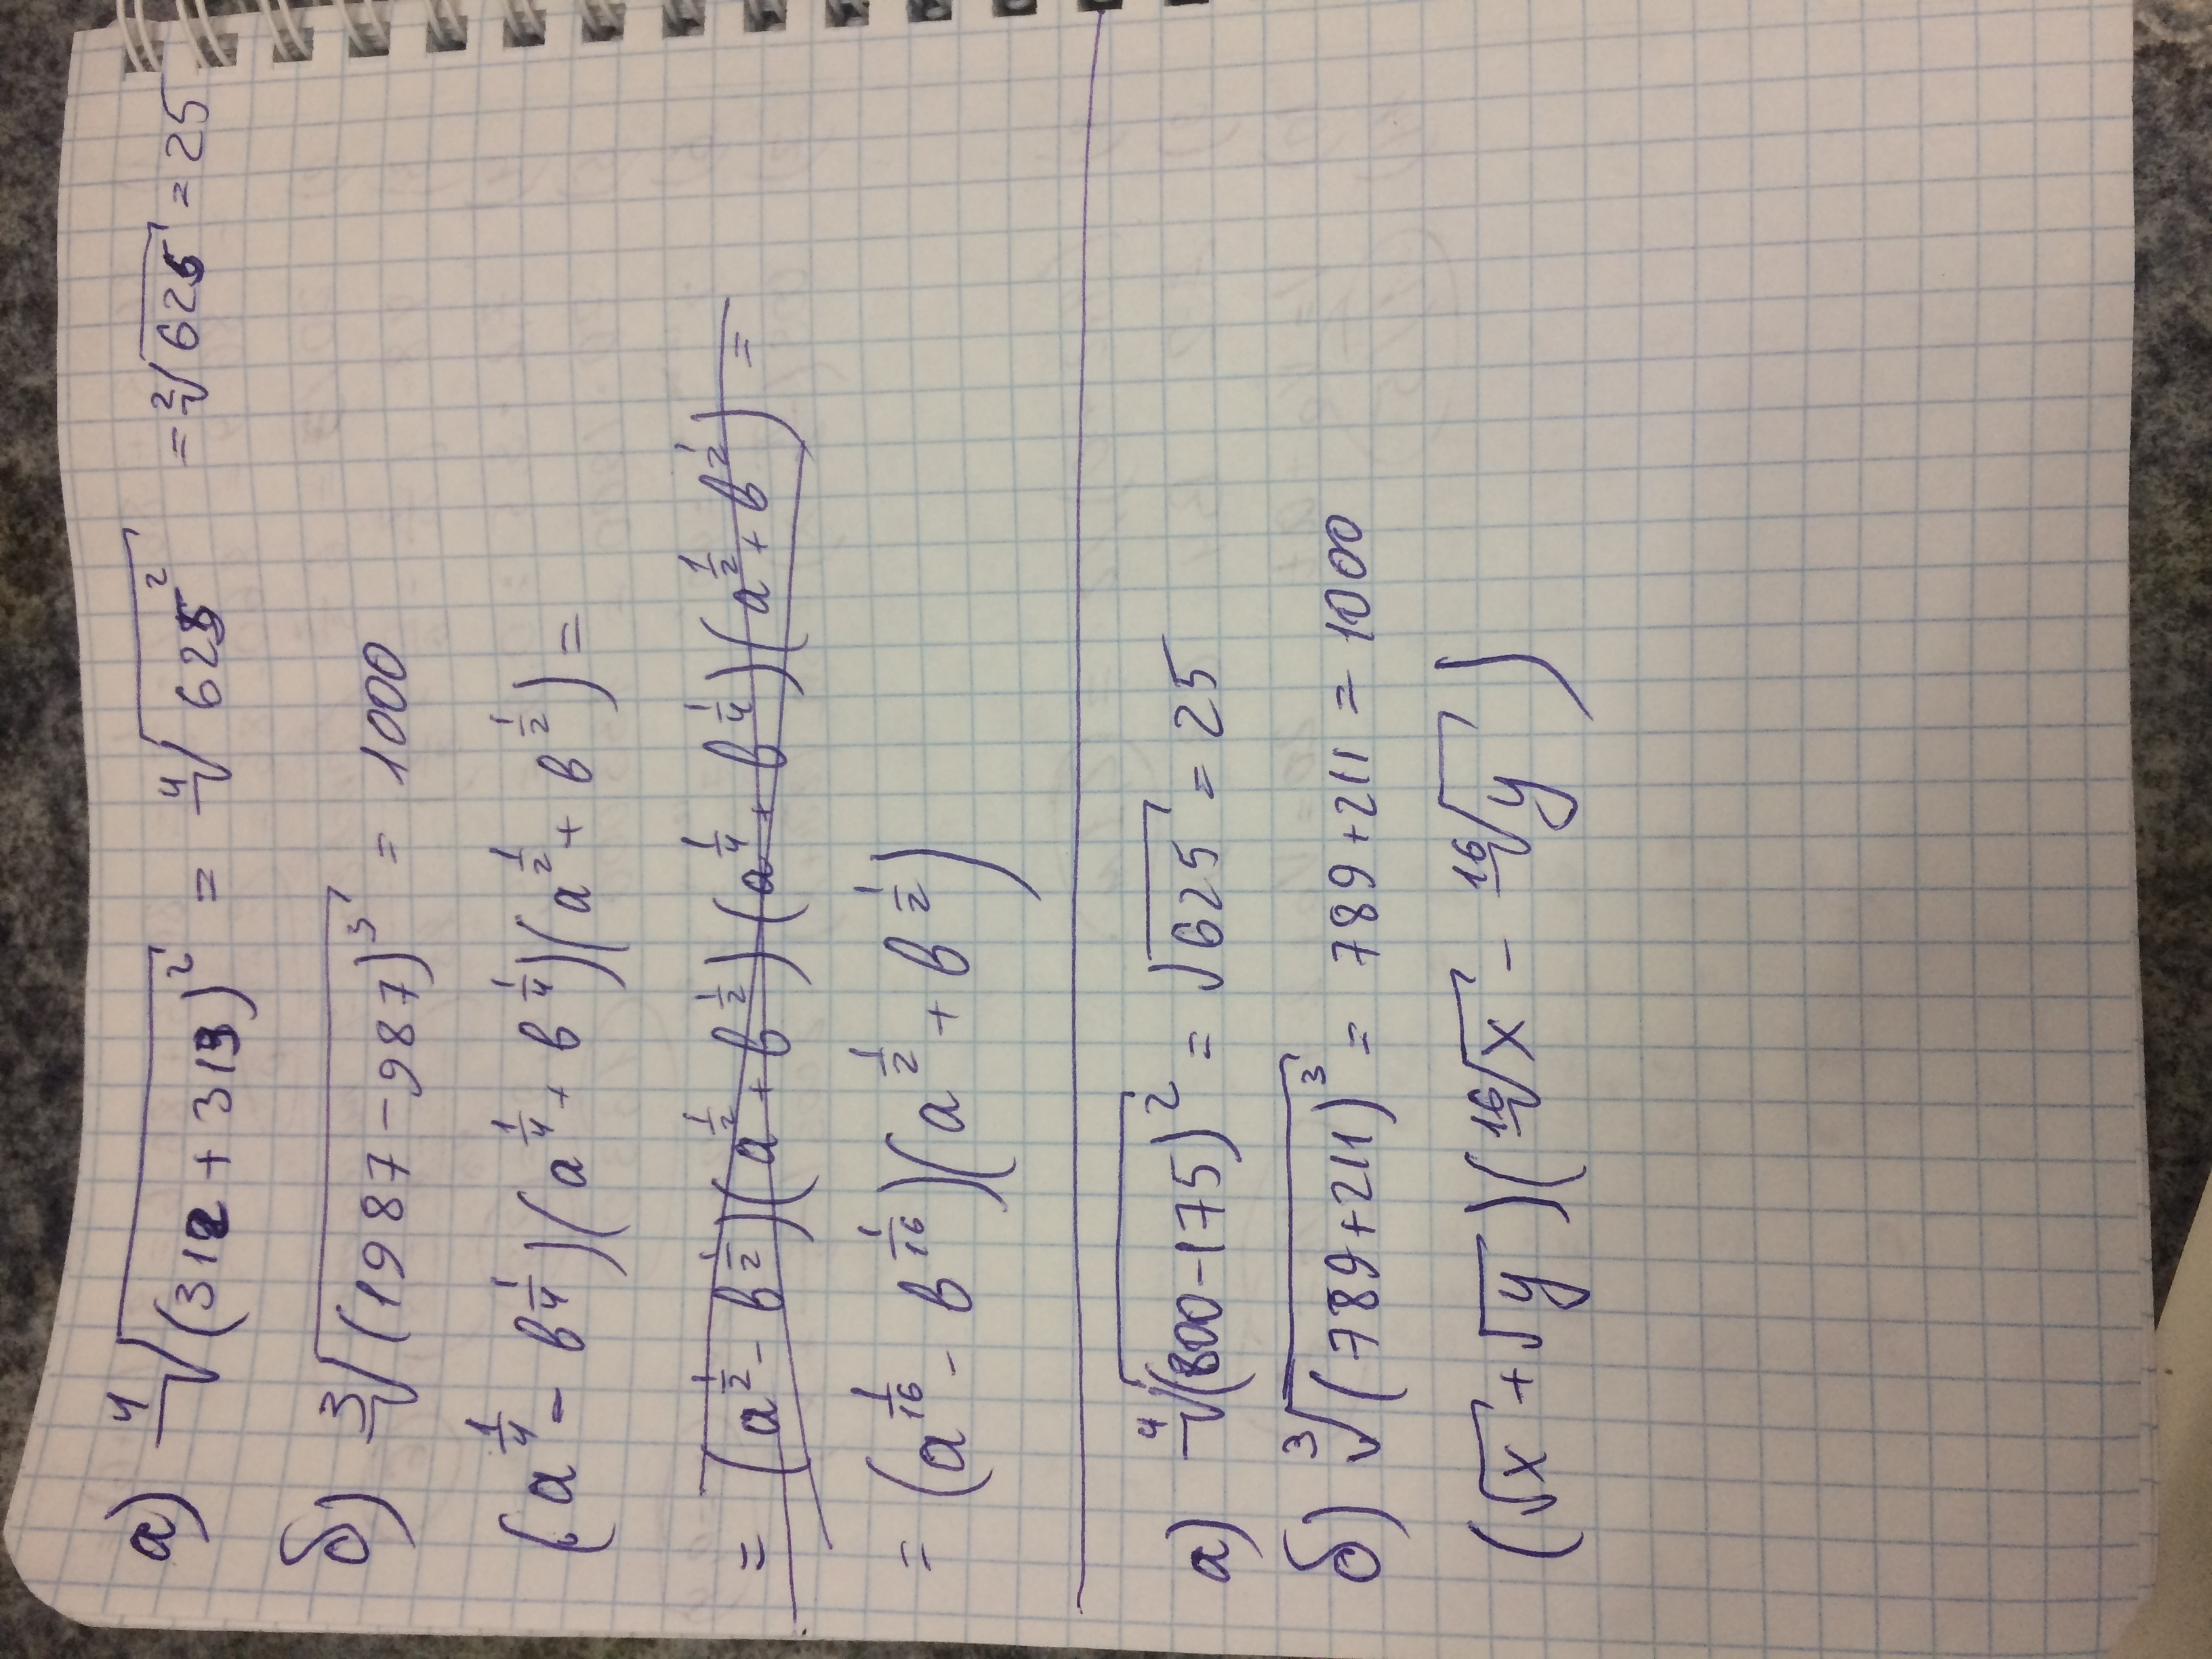 а) ⁴√(312 + 313)² = ⁴√625² = ²√625 = 25
б) ³√(1987 - 987)³ = 1000
(a^¼ - b^¼)(a^¼ + b^¼)(a^½ + b^½) =
= (a^½ - b^½)(a^½ + b^½)(a^¼ + b^¼)(a^½ + b^½) =
= (a^1/16 - b^1/16)(a^½ + b^½)
а) ⁴√(800-175)² = √625 = 25
б) ³√(789+211)³ = 789+211 = 1000
(√x + √y)(¹⁶√x - ¹⁶√y)